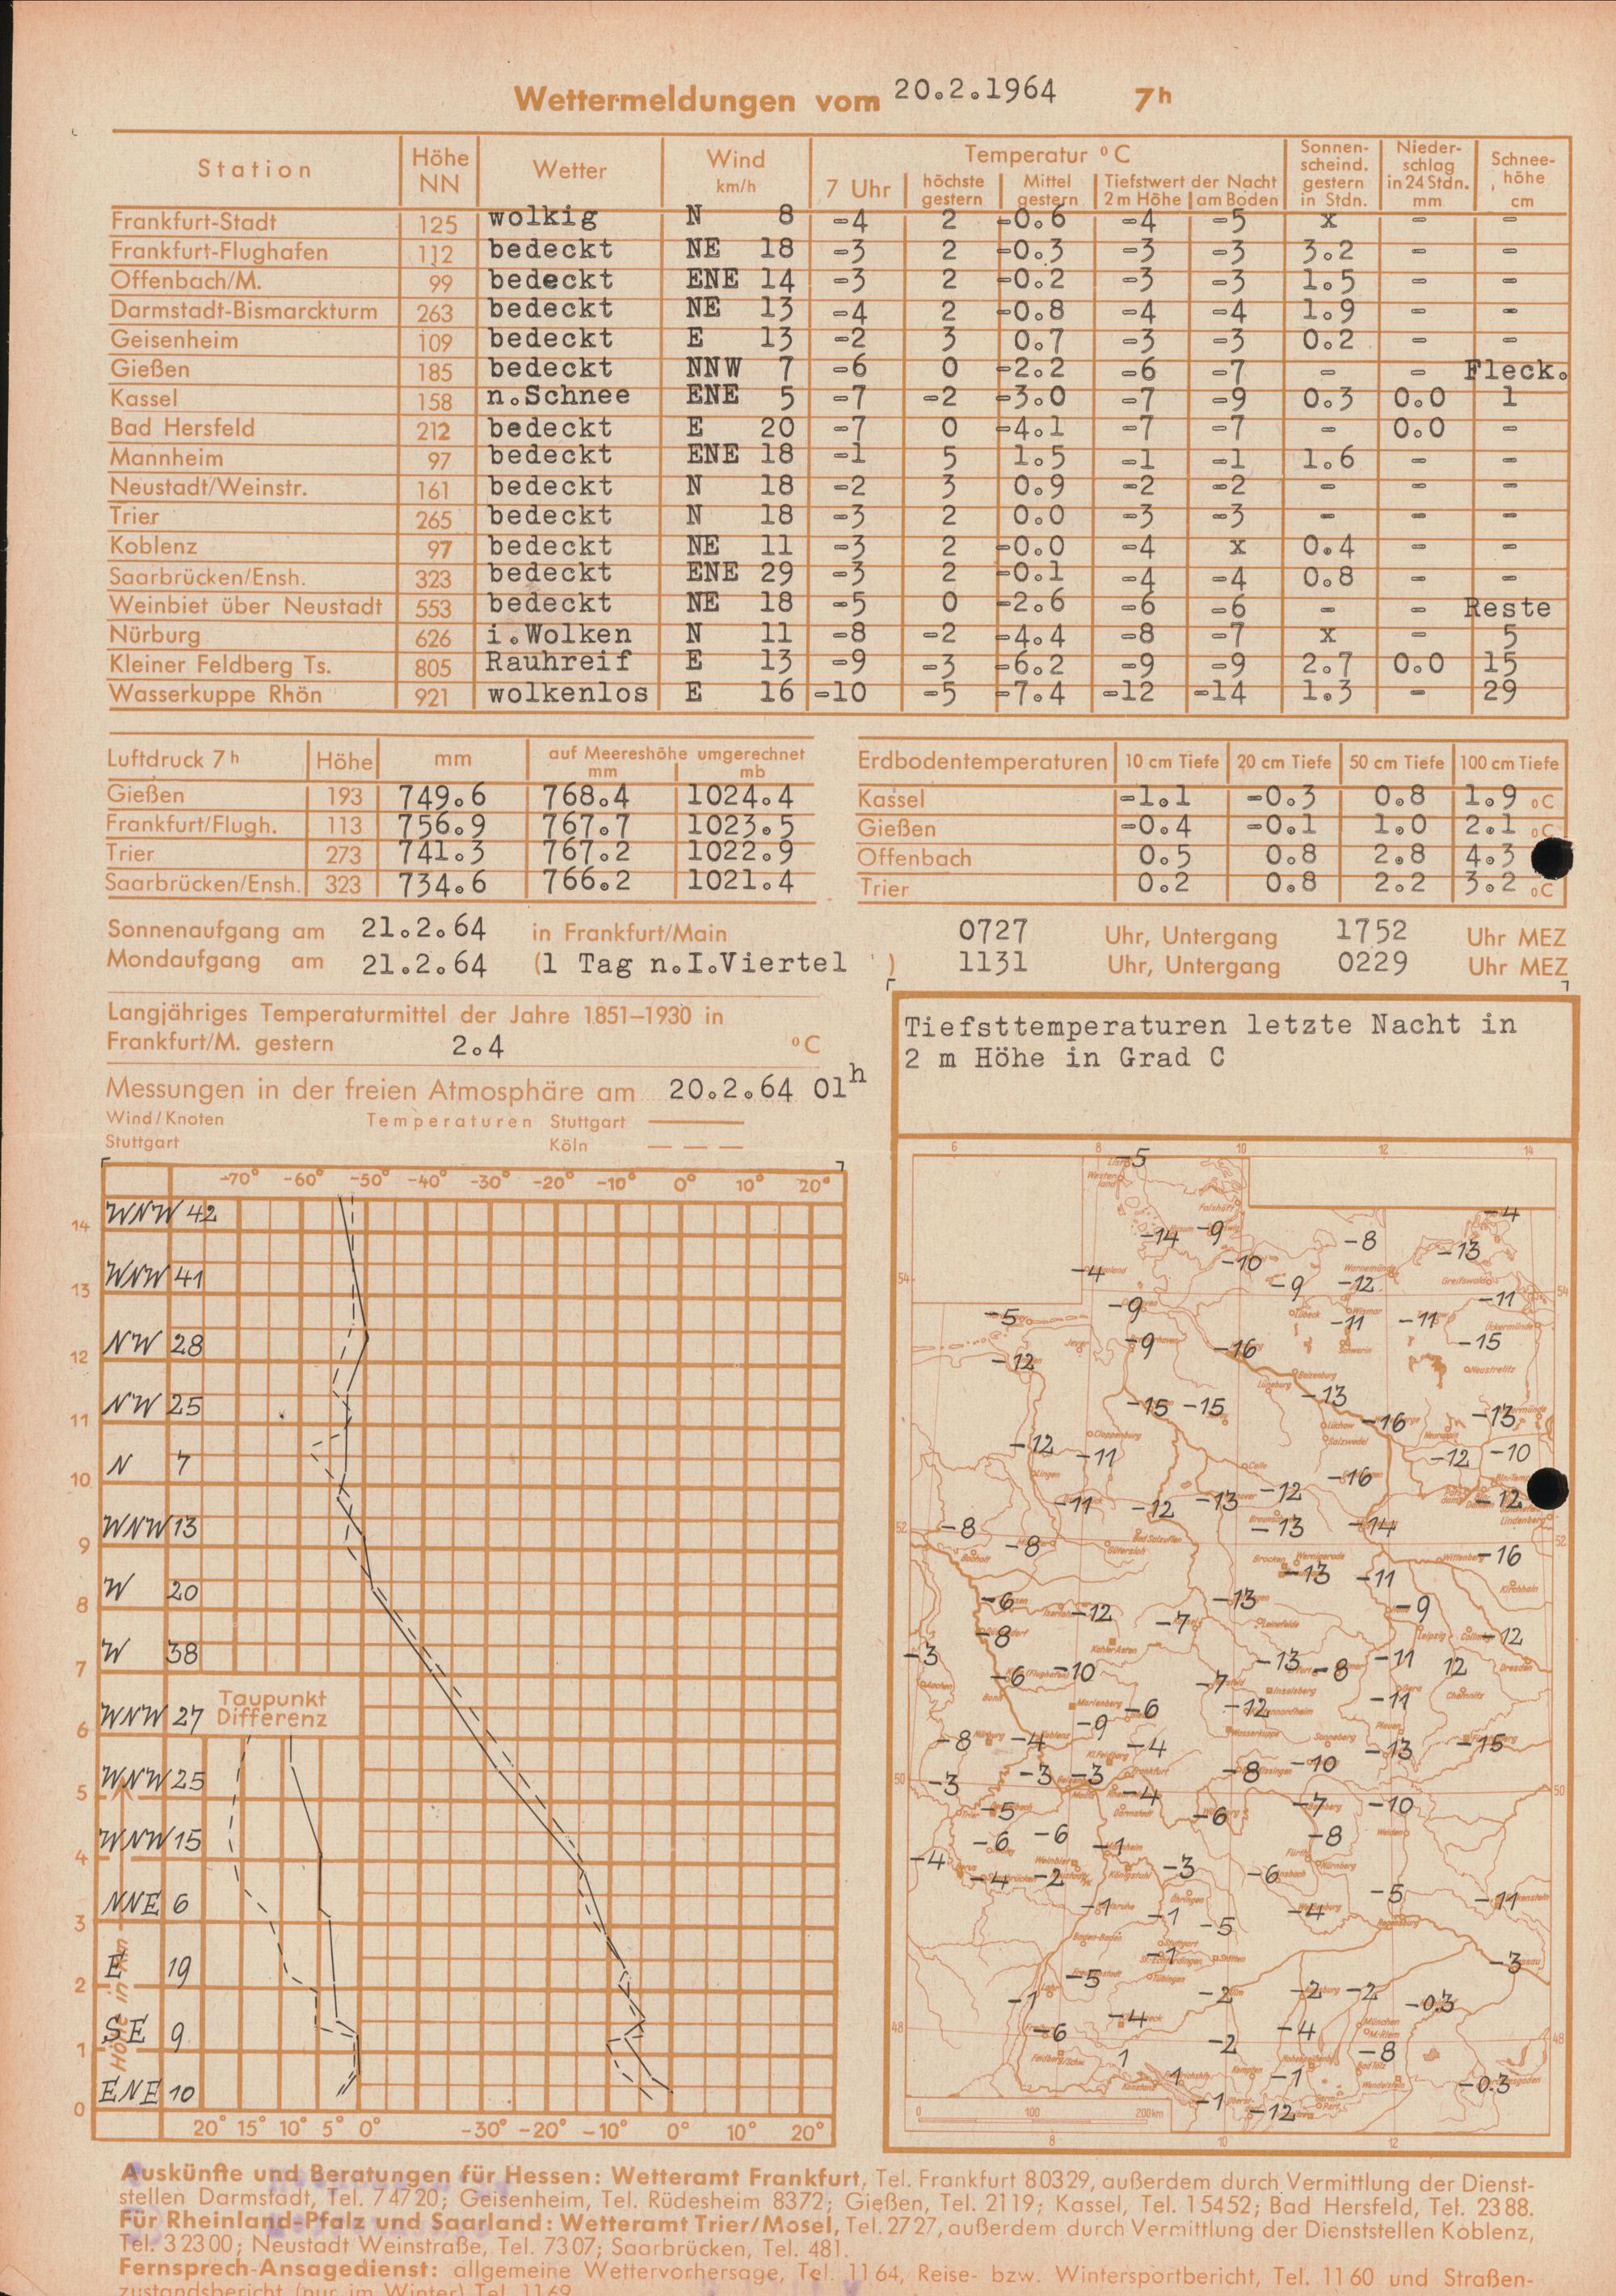 Wettermeldungen vom 20.2.1964 7h
Station Höhe NN Wetter Wind km/h Temperatur °C Sonnenscheind. gestern in Stdn. Niederschlag in 24 Stdn. mm Schneehöhe cm
7 Uhr höchste gestern Mittel gestern Tiefstwert der Nacht 2 m Höhe am Boden
Frankfurt-Stadt 125 wolkig N 8 -4 2 -0.6 -4 -5 x - -
Frankfurt-Flughafen 112 bedeckt NE 18 -3 2 -0.3 -3 -3 3.2 - -
Offenbach/M. 99 bedeckt ENE 14 -3 2 -0.2 -3 -3 1.5 - -
Darmstadt-Bismarckturm 263 bedeckt NE 13 -4 2 -0.8 -4 -4 1.9 - -
Geisenheim 109 bedeckt E 13 -2 3 0.7 -3 -3 0.2 - -
Gießen 185 bedeckt NNW 7 -6 0 -2.2 -6 -7 - - Fleck.
Kassel 158 n.Schnee ENE 5 -7 -2 -3.0 -7 -9 0.3 0.0 1
Bad Hersfeld 212 bedeckt E 20 -7 0 -4.1 -7 -7 - 0.0 -
Mannheim 97 bedeckt ENE 18 -1 5 1.5 -1 -1 1.6 - -
Neustadt/Weinstr. 161 bedeckt N 18 -2 3 0.9 -2 -2 - - -
Trier 265 bedeckt N 18 -3 2 0.0 -3 -3 - - -
Koblenz 97 bedeckt NE 11 -3 2 -0.0 -4 x 0.4 - -
Saarbrücken/Ensh. 323 bedeckt ENE 29 -3 2 -0.1 -4 -4 0.8 - -
Weinbiet über Neustadt 553 bedeckt NE 18 -5 0 -2.6 -6 -6 - - Reste
Nürburg 626 i.Wolken N 11 -8 -2 -4.4 -8 -7 x - 5
Kleiner Feldberg Ts. 805 Rauhreif E 13 -9 -3 -6.2 -9 -9 2.7 0.0 15
Wasserkuppe Rhön 921 wolkenlos E 16 -10 -5 -7.4 -12 -14 1.3 - 29
Luftdruck 7h Höhe mm auf Meereshöhe umgerechnet mm mb
Gießen 193 749.6 768.4 1024.4
Frankfurt/Flugh. 113 756.9 767.7 1023.5
Trier 273 741.3 767.2 1022.9
Saarbrücken/Ensh. 323 734.6 766.2 1021.4
Erdbodentemperaturen 10 cm Tiefe 20 cm Tiefe 50 cm Tiefe 100 cm Tiefe
Kassel -1.1 -0.3 0.8 1.9 °C
Gießen -0.4 -0.1 1.0 2.1 °C
Offenbach 0.5 0.8 2.8 4.3
Trier 0.2 0.8 2.2 3.2 °C
Sonnenaufgang am 21.2.64 in Frankfurt/Main 0727 Uhr, Untergang 1752 Uhr MEZ
Mondaufgang am 21.2.64 (1 Tag n.I.Viertel ) 1131 Uhr, Untergang 0229 Uhr MEZ
Langjähriges Temperaturmittel der Jahre 1851–1930 in
Frankfurt/M. gestern 2.4 °C
Messungen in der freien Atmosphäre am 20.2.64 01h
Wind/Knoten Temperaturen Stuttgart
Stuttgart Köln
-70° -60° -50° -40° -30° -20° -10° 0° 10° 20°
WNW 42
14
WNW 41
13
NW 28
12
NW 25
11
N 7
10
WNW 13
9
W 20
8
W 38
7
WNW 27
Taupunkt
Differenz
6
WNW 25
5
WNW 15
4
NNE 6
3
E 19
2
SE 9
1
ENE 10
0
20° 15° 10° 5° 0° -30° -20° -10° 0° 10° 20°
Tiefsttemperaturen letzte Nacht in
2 m Höhe in Grad C
6 8 10 12 14
-5
-4
-14 -9 -8 -13
-4 -10
-9 -12
-5 -9 -11 -11 -11
-12 -9 -16 -15
-15 -15 -13 -16 -13
-12 -11 -12 -10
-11 -12 -13 -12 -16 -12
-8 -8 -13 -14 -16
-13 -11
-6 -12 -7 -13 -9
-8 -12
-3 -6 -10 -7 -13 -8 -11 12
-9 -6 -12 -11
-8 -4 -4 -13 -15
-3 -3 -3 -8 -10
-5 -4 -6 -7 -10
-6 -6 -1 -8
-4 -4 -2 -3 -6
-1 -1 -5 -4 -5 -11
-1 -3
-5
-1 -4 -2 -2 -2 -0.3
-6 -2 -4 -8
1 1 -1 -0.3
-1 -12
0 100 200 km
8 10 12
Auskünfte und Beratungen für Hessen: Wetteramt Frankfurt, Tel. Frankfurt 80329, außerdem durch Vermittlung der Dienst-
stellen Darmstadt, Tel. 74720; Geisenheim, Tel. Rüdesheim 8372; Gießen, Tel. 2119; Kassel, Tel. 15452; Bad Hersfeld, Tel. 2388.
Für Rheinland-Pfalz und Saarland: Wetteramt Trier/Mosel, Tel. 2727, außerdem durch Vermittlung der Dienststellen Koblenz,
Tel. 32300; Neustadt Weinstraße, Tel. 7307; Saarbrücken, Tel. 481.
Fernsprech-Ansagedienst: allgemeine Wettervorhersage, Tel. 1164, Reise- bzw. Wintersportbericht, Tel. 1160 und Straßen-
zustandsbericht (nur im Winter) Tel. 1169